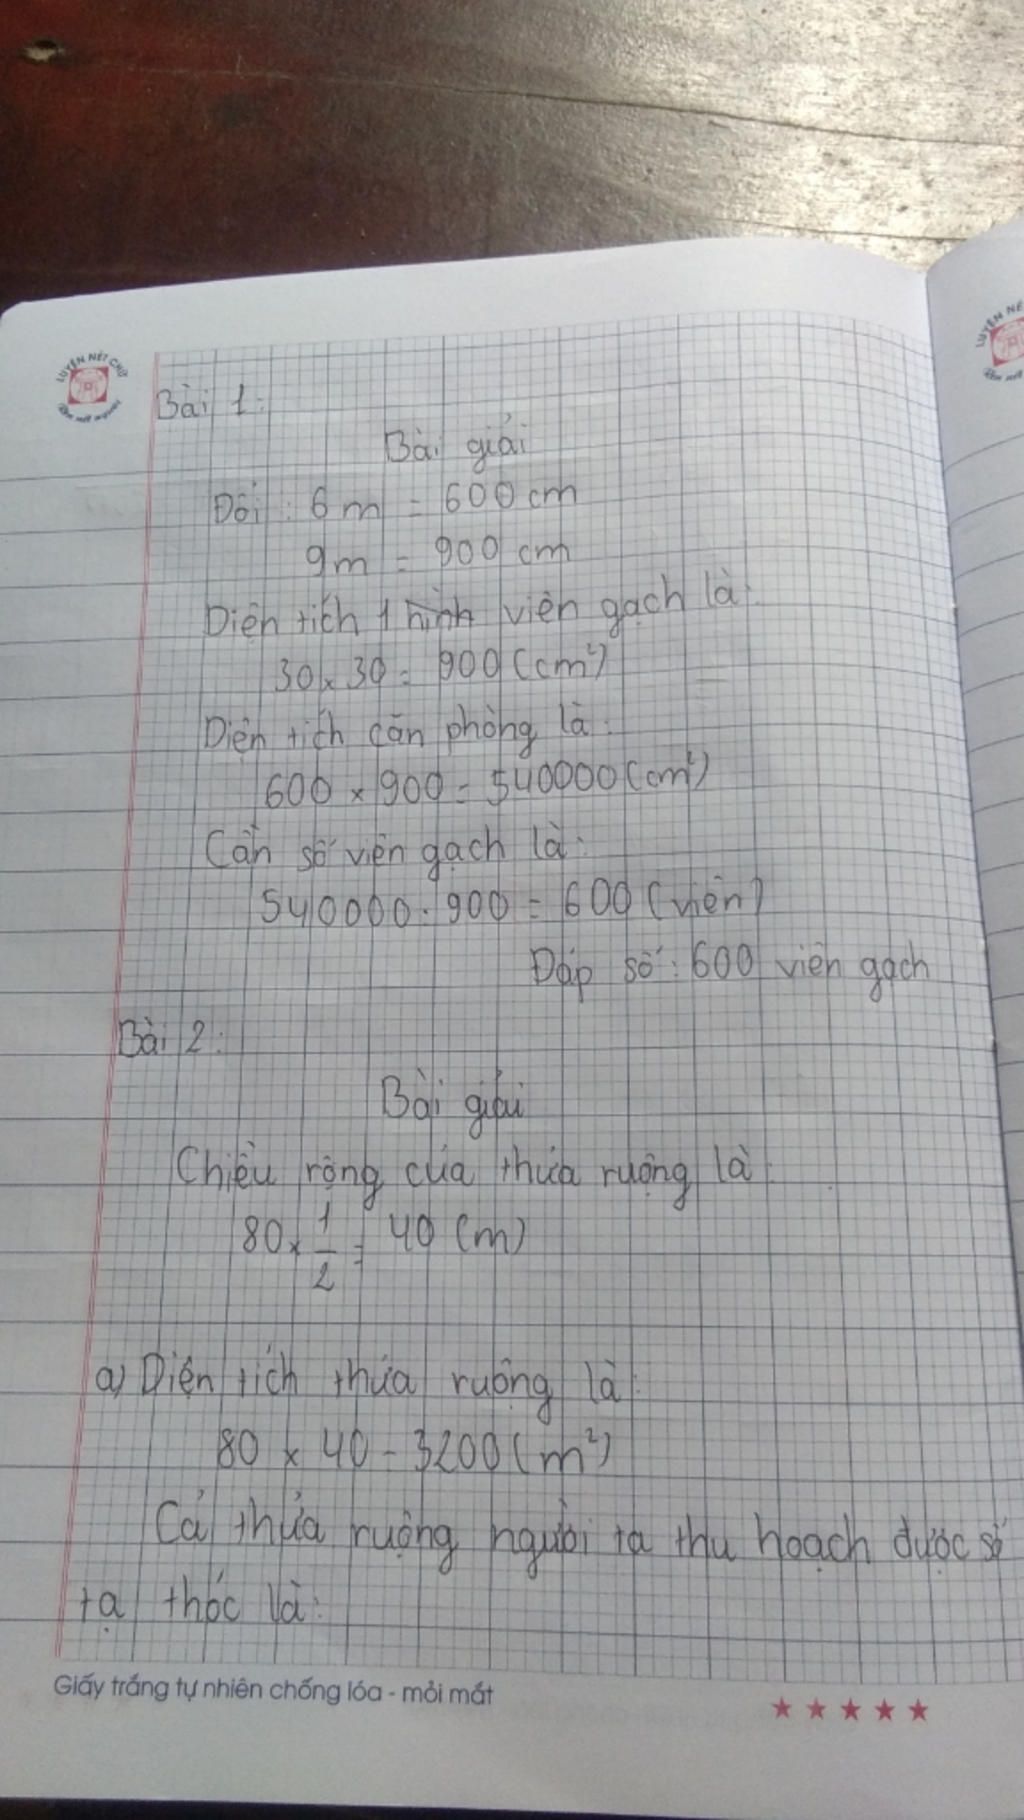 LUYỆN NÉT CHỮ
Rèn nết người
Bài 1:
Bài giải
Đổi: 6 m = 600 cm
9m = 900 cm
Diện tích 1 hình viên gạch là:
30 x 30 = 900 (cm²)
Diện tích căn phòng là:
600 x 900 = 540000 (cm²)
Cần số viên gạch là:
540000 : 900 = 600 (viên)
Đáp số: 600 viên gạch
Bài 2:
Bài giải
Chiều rộng của thửa ruộng là:
80 x 1/2 = 40 (m)
a) Diện tích thửa ruộng là:
80 x 40 = 3200 (m²)
Cả thửa ruộng người ta thu hoạch được số
tạ thóc là:
Giấy trắng tự nhiên chống lóa - mỏi mắt